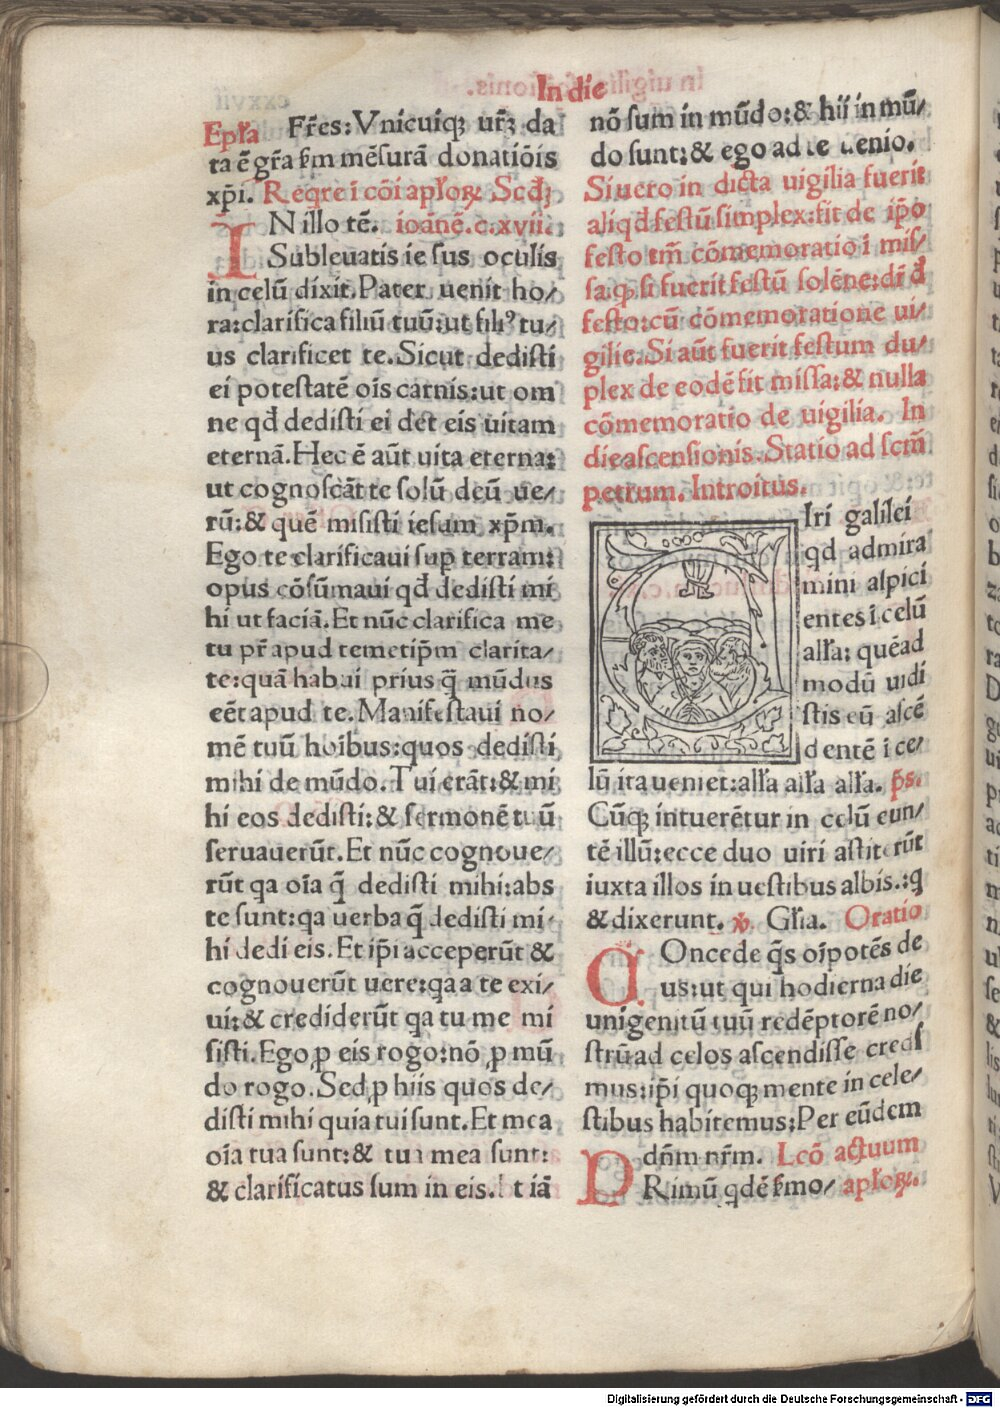 In die
Epl̃a Fr̃es: Vnicuiqꝫ ur̃ꝫ da
ta ẽ gr̃a ẜm mẽsurã donatiõis
xp̃i. Reqre ĩ cõi apłoꝝ Scđꝫ
IN illo tẽ. ioãnẽ.c.xvii.
Subleuatis ie sus oculis
in celũ dixit. Pater uenit ho/
ra:clarifica filiũ tuũ:ut filiꝰ tu/
us clarificet te. Sicut dedisti
ei potestatẽ oĩs carnis:ut om
ne qđ dedisti ei det eis uitam
eternã. Hec ẽ aũt uita eterna:
ut cognoscãt te solũ deũ ue/
rũ:& quẽ misisti iesum xp̃m.
Ego te clarificaui sup̃ terram:
opus cõsũmaui qđ dedisti mi
hi ut faciã. Et nũc clarifica me
tu pr̃ apud temetip̃m clarita/
te:quã habui prius q̃ mũdus
eẽt apud te. Manifestaui no/
mẽ tuũ hoĩbus:quos dedisti
mihi de mũdo. Tui erãt:& mi
hi eos dedisti:& sermonẽ tuũ
seruauerũt. Et nũc cognoue/
rũt qa oĩa q̃ dedisti mihi:abs
te sunt:qa uerba q̃ dedisti mi
hi dedi eis. Et ip̃i acceperũt &
cognouerũt uere:qa a te exi/
ui:& crediderũt qa tu me mi
sisti. Ego ꝓ eis rogo:nõ ꝓ mũ
do rogo. Sed ꝓ hiis quos de/
disti mihi quia tui sunt. Et mea
oĩa tua sunt:& tua mea sunt:
& clarificatus sum in eis. Et iã
nõ sum in mũdo:& hii in mũ/
do sunt:& ego ad te uenio.
Si uero in dicta uigilia fuerit
aliqđ festũ simplex:fit de ip̃o
festo tm̃ cõmemoratio ĩ mis/
sa. qꝫ si fuerit festũ solẽne:dr̃ đ
festo:cũ cõmemoratione ui/
gilie. Si aũt fuerit festum du/
plex de eodẽ fit missa:& nulla
cõmemoratio de uigilia. In
die ascensionis. Statio ad scm̃
petrum. Introitus.
Iri galilei
qd admira
mini aspici
entes ĩ celũ
alľa: quẽad
modũ uidi
stis eũ ascẽ
dentẽ ĩ ce/
lũ ita ueniet:alľa alľa alľa. p̃s.
Cũqꝫ intuerẽtur in celũ eun/
tẽ illũ:ecce duo uiri astiterũt
iuxta illos in uestibus albis.:q
& dixerunt. ℣. Głia. Oratio
COncede q̃s oĩpotẽs de
us:ut qui hodierna die
unigenitũ tuũ redẽptorẽ no/
strũ ad celos ascendisse credi
mus:ip̃i quoqꝫ mente in cele/
stibus habitemus:Per eũdem
dñm nr̃m. Lcõ actuum
PRimũ qdẽ ẜmo/ apłoꝝ.
Digitalisierung gefördert durch die Deutsche Forschungsgemeinschaft - DFG